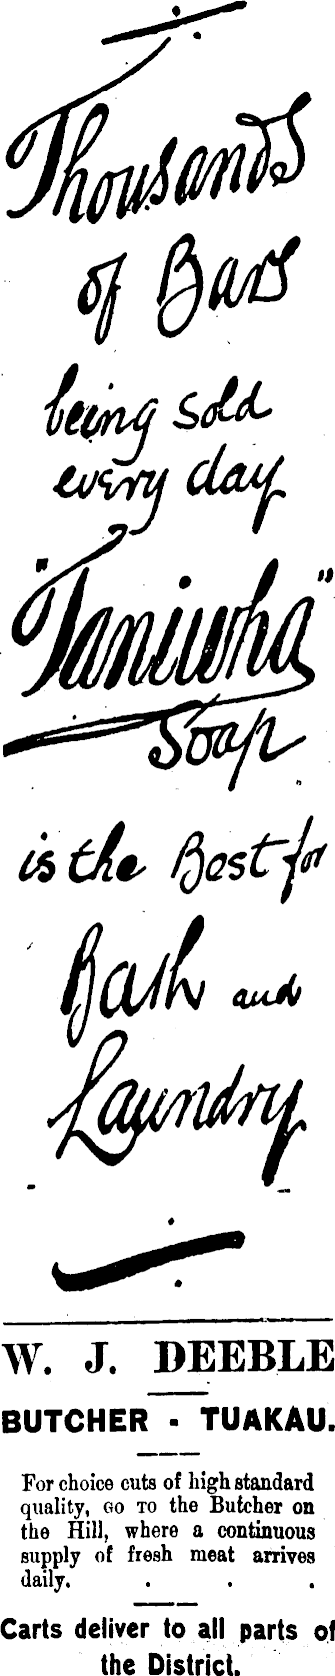 Thousands
of Bars
being sold
every day
"Taniwha"
Soap
is the Best for
Bath and
Laundry
W. J. DEEBLE
BUTCHER - TUAKAU.
For choice cuts of high standard
quality, GO TO the Butcher on
the Hill, where a continuous
supply of fresh meat arrives
daily. . . .
Carts deliver to all parts of
the District.